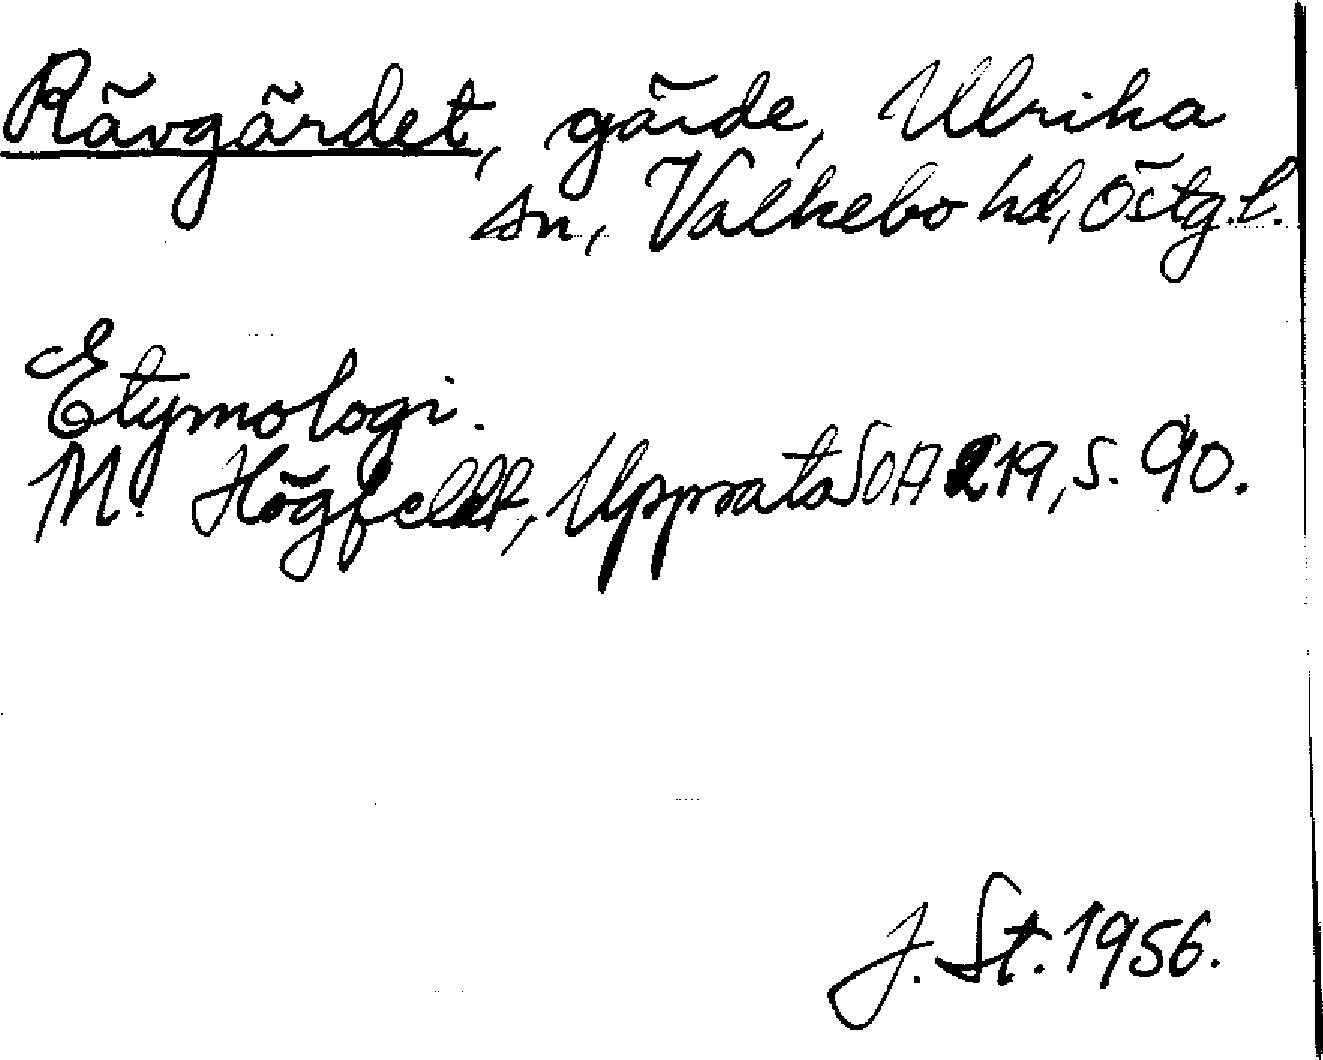 Rävgärdet, gärde, Ulrika
sn, Valkebo hd, Östg.l.
Etymologi.
M. Högfeldt, Uppsats SOA 219, s. 90.
J. St. 1956.